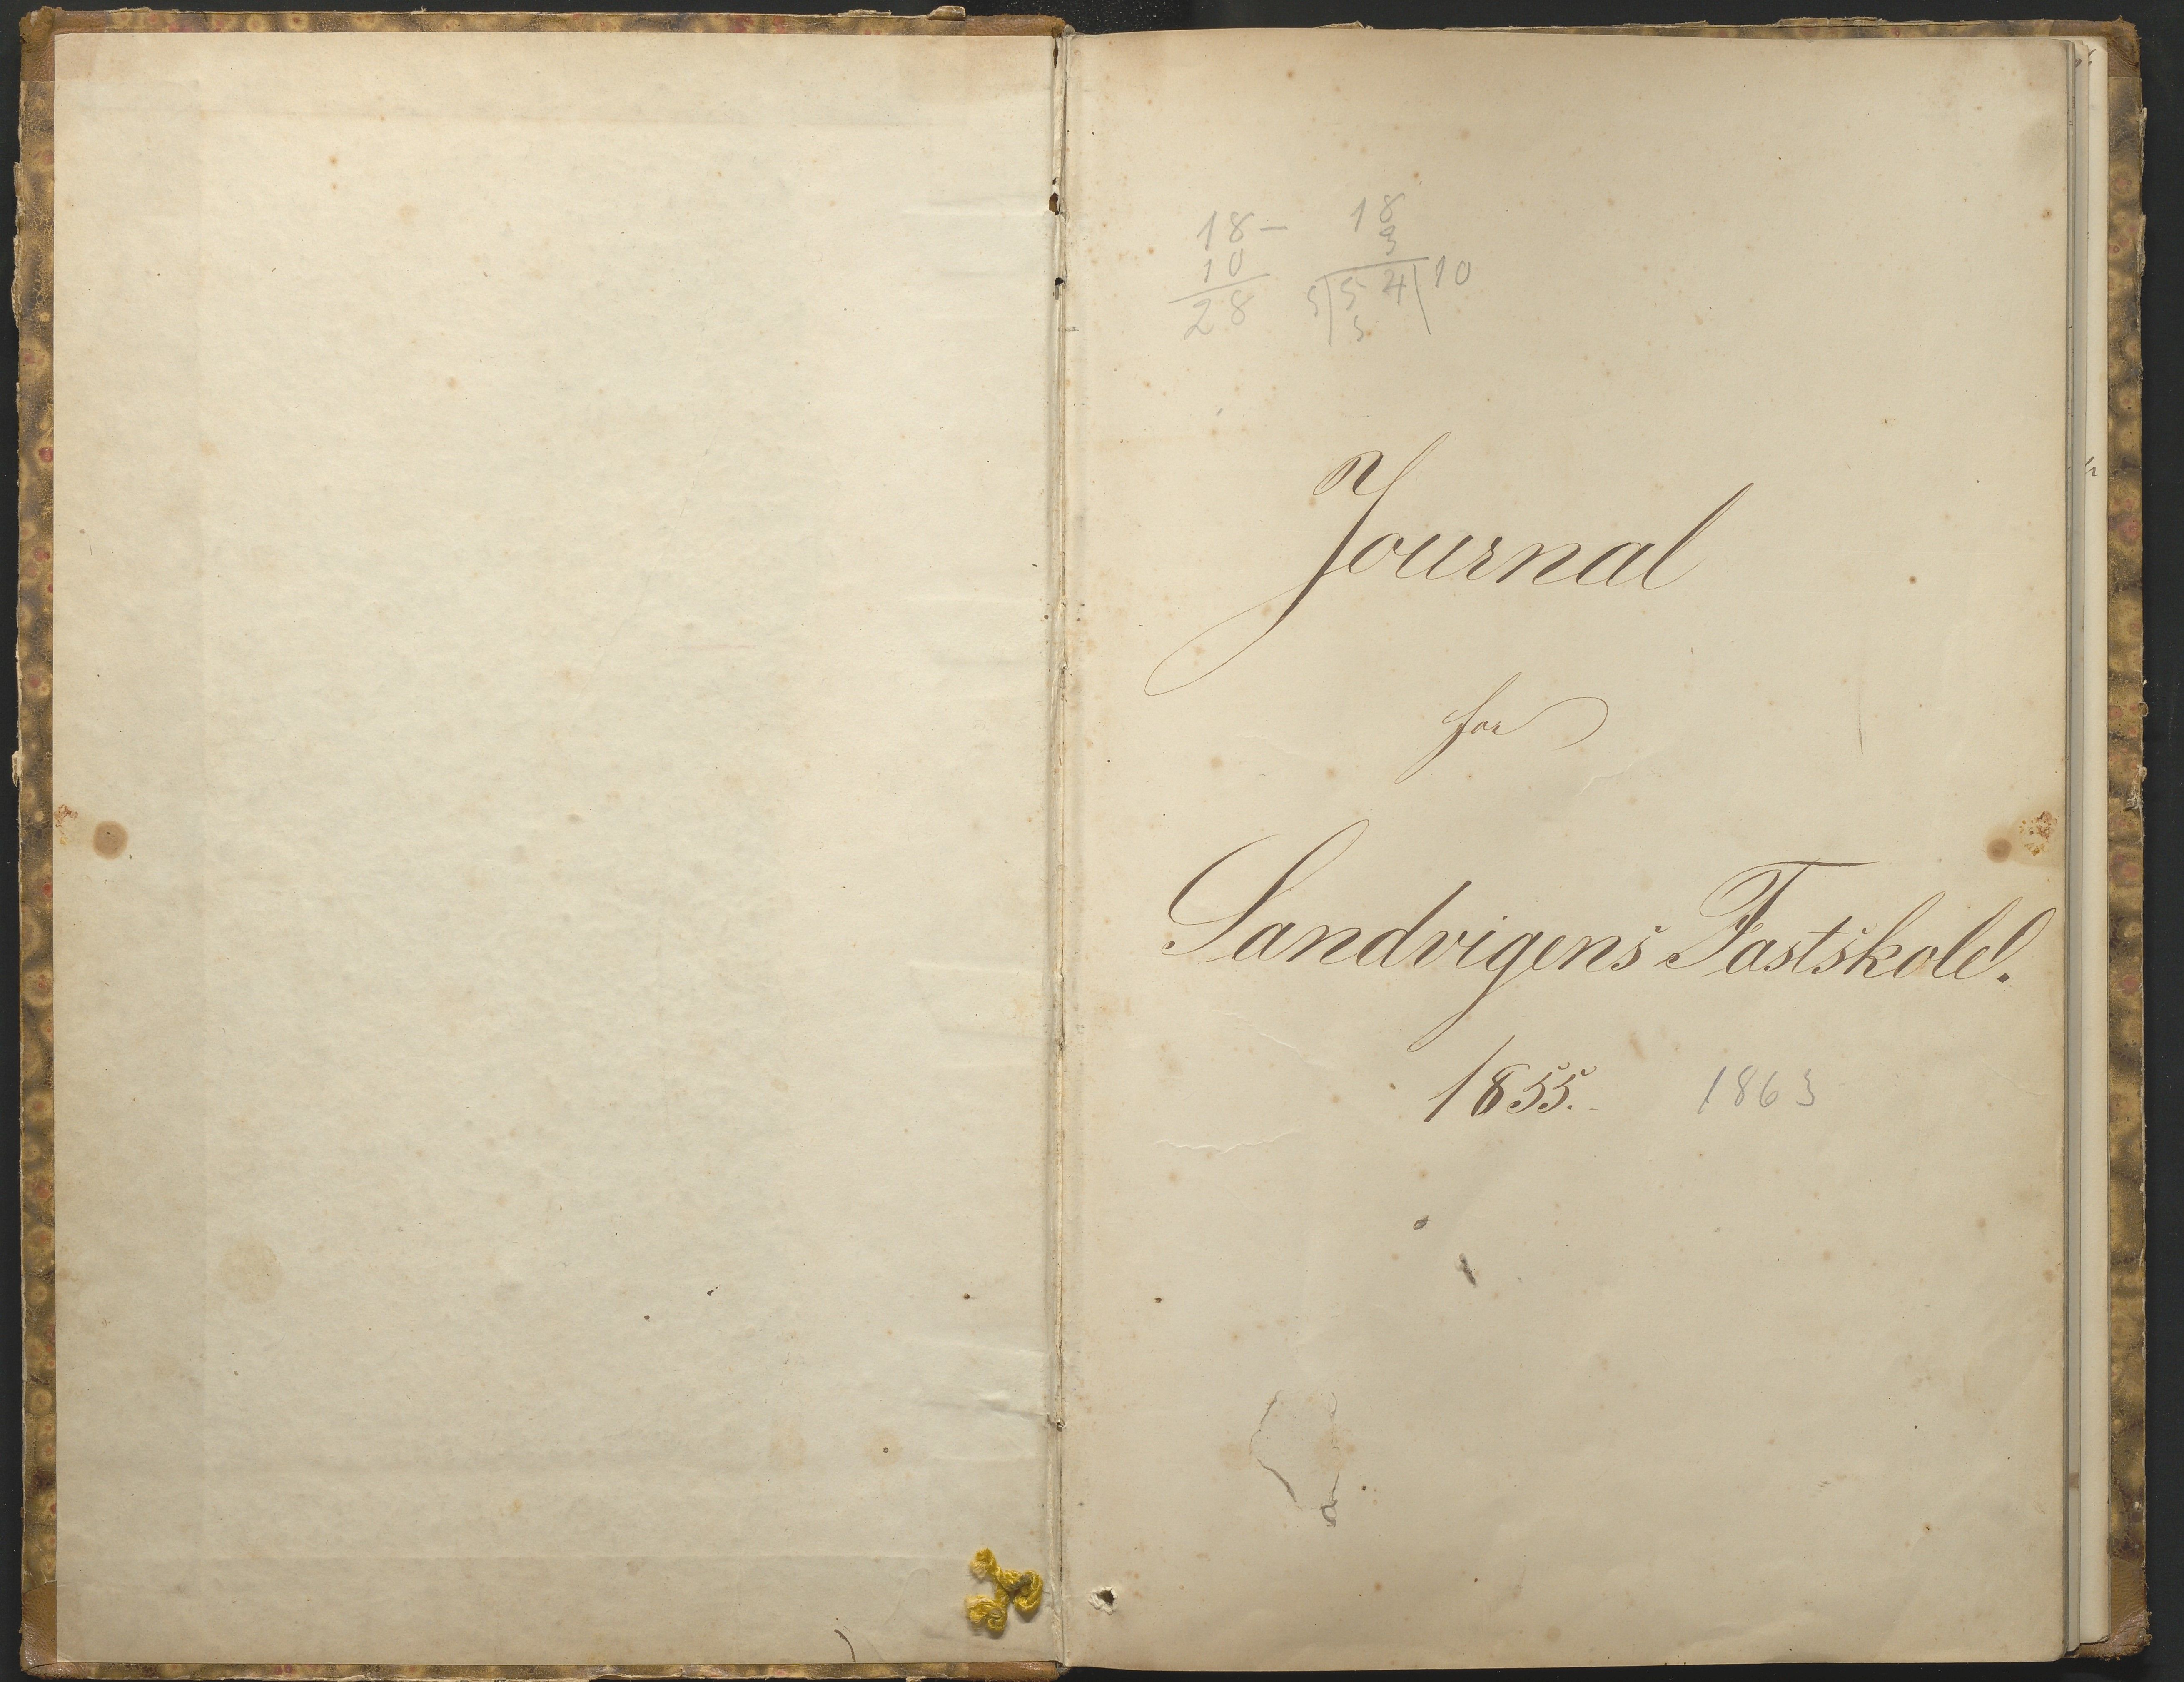 18 – 18
10 3
28 5|54|10
5
Journal
for
Sandvigens Fastskole.
1855. 1863